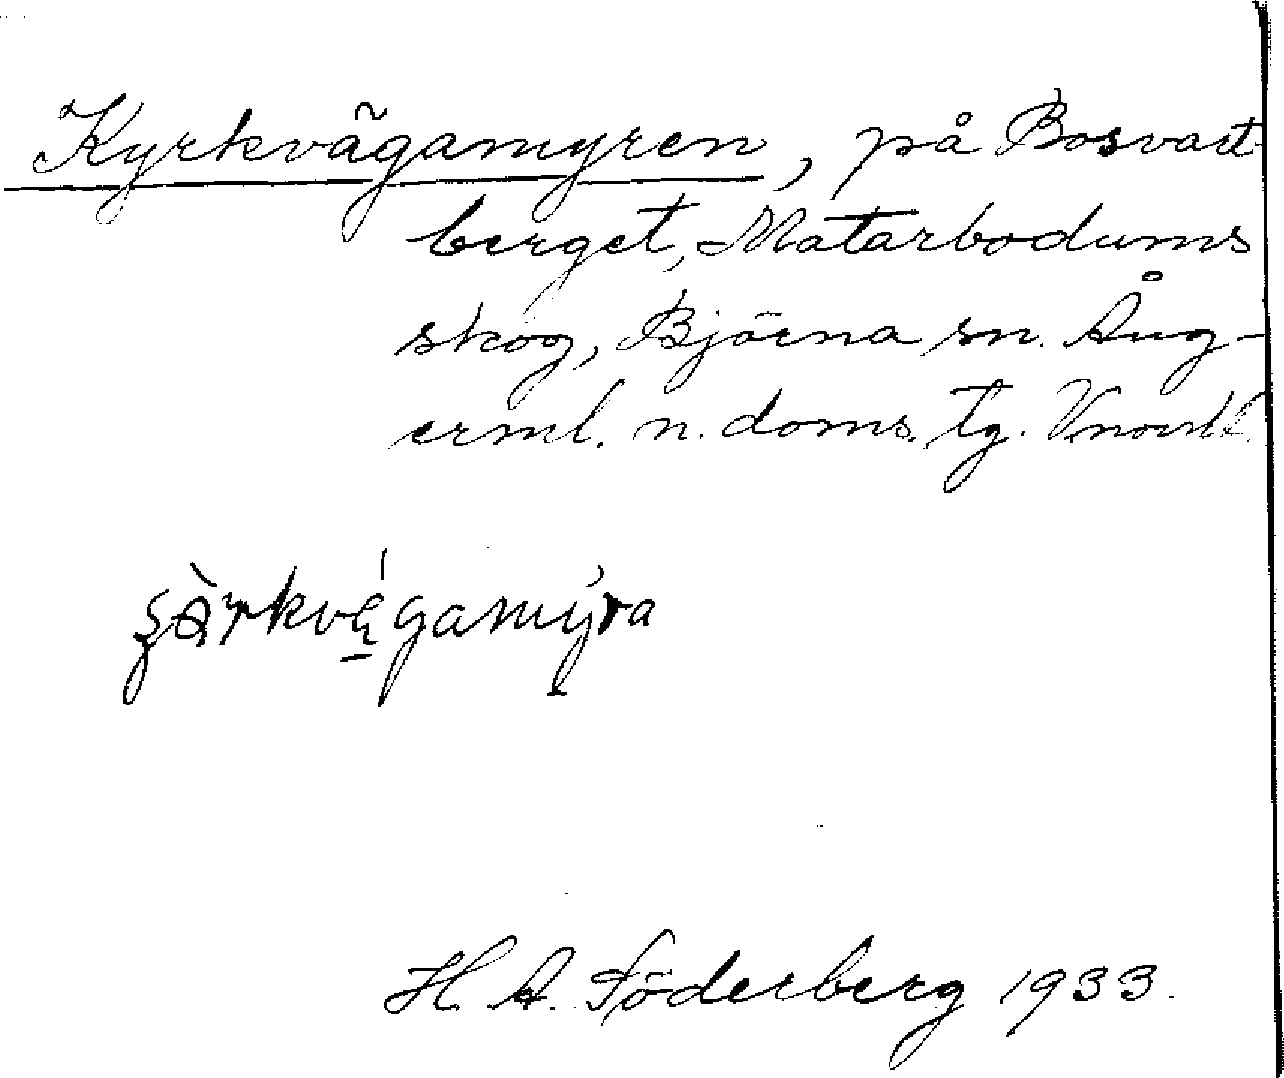 Kyrkvägamyren, på Bosvart-
berget, Matarbodums
skog, Björna sn. Ång-
erml. n. doms. tg. Vnorrl.
H. A. Söderberg 1933.